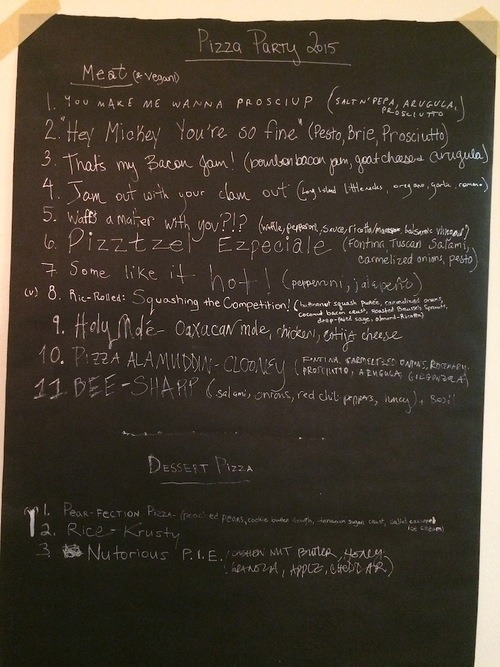 Pizza Party 2015
Meat (& vegan)
1. You make me wanna prosciup (Salt n' Pepa, Arugula,
Prosciutto)
2. "Hey Mickey You're so fine" (Pesto, Brie, Prosciutto)
3. Thats my Bacon Jam! (bourbon bacon jam, goat cheese arugula)
4. Jam out with your clam out (Long Island littlenecks, oregano, garlic, romano)
5. Waffs a matter with you?!? (waffle, pepperoni, sauce, ricotta/
6. Pizztzel Ezpeciale (Fontina, Tuscan Salami,
carmelized onions, pesto)
7. Some like it hot! (pepperoni, jalapeño)
(v) 8. Ric-Rolled: Squashing the Competition! (butternut squash puree, carmelized onions,
coconut bacon crust, Roasted Brussels Sprouts,
deep-fried sage, almond-Ricotta)
9. Holy Mole - Oaxacan mole, chicken, cotija cheese
10. Pizza Alamuddin-Clooney (Fontina, carmelized onions, rosemary,
prosciutto, arugula, gorgonzola)
11 Bee-Sharp (salami, onions, red chili peppers, honey) + Basil
Dessert Pizza
1. Pear-fection Pizza - (poached pears, cookie butter sugar crust,
ice cream)
2. Rice-Krusty
3 Nutorious P.I.E. (cashew nut butler, honey
granola, apple, cheddar)